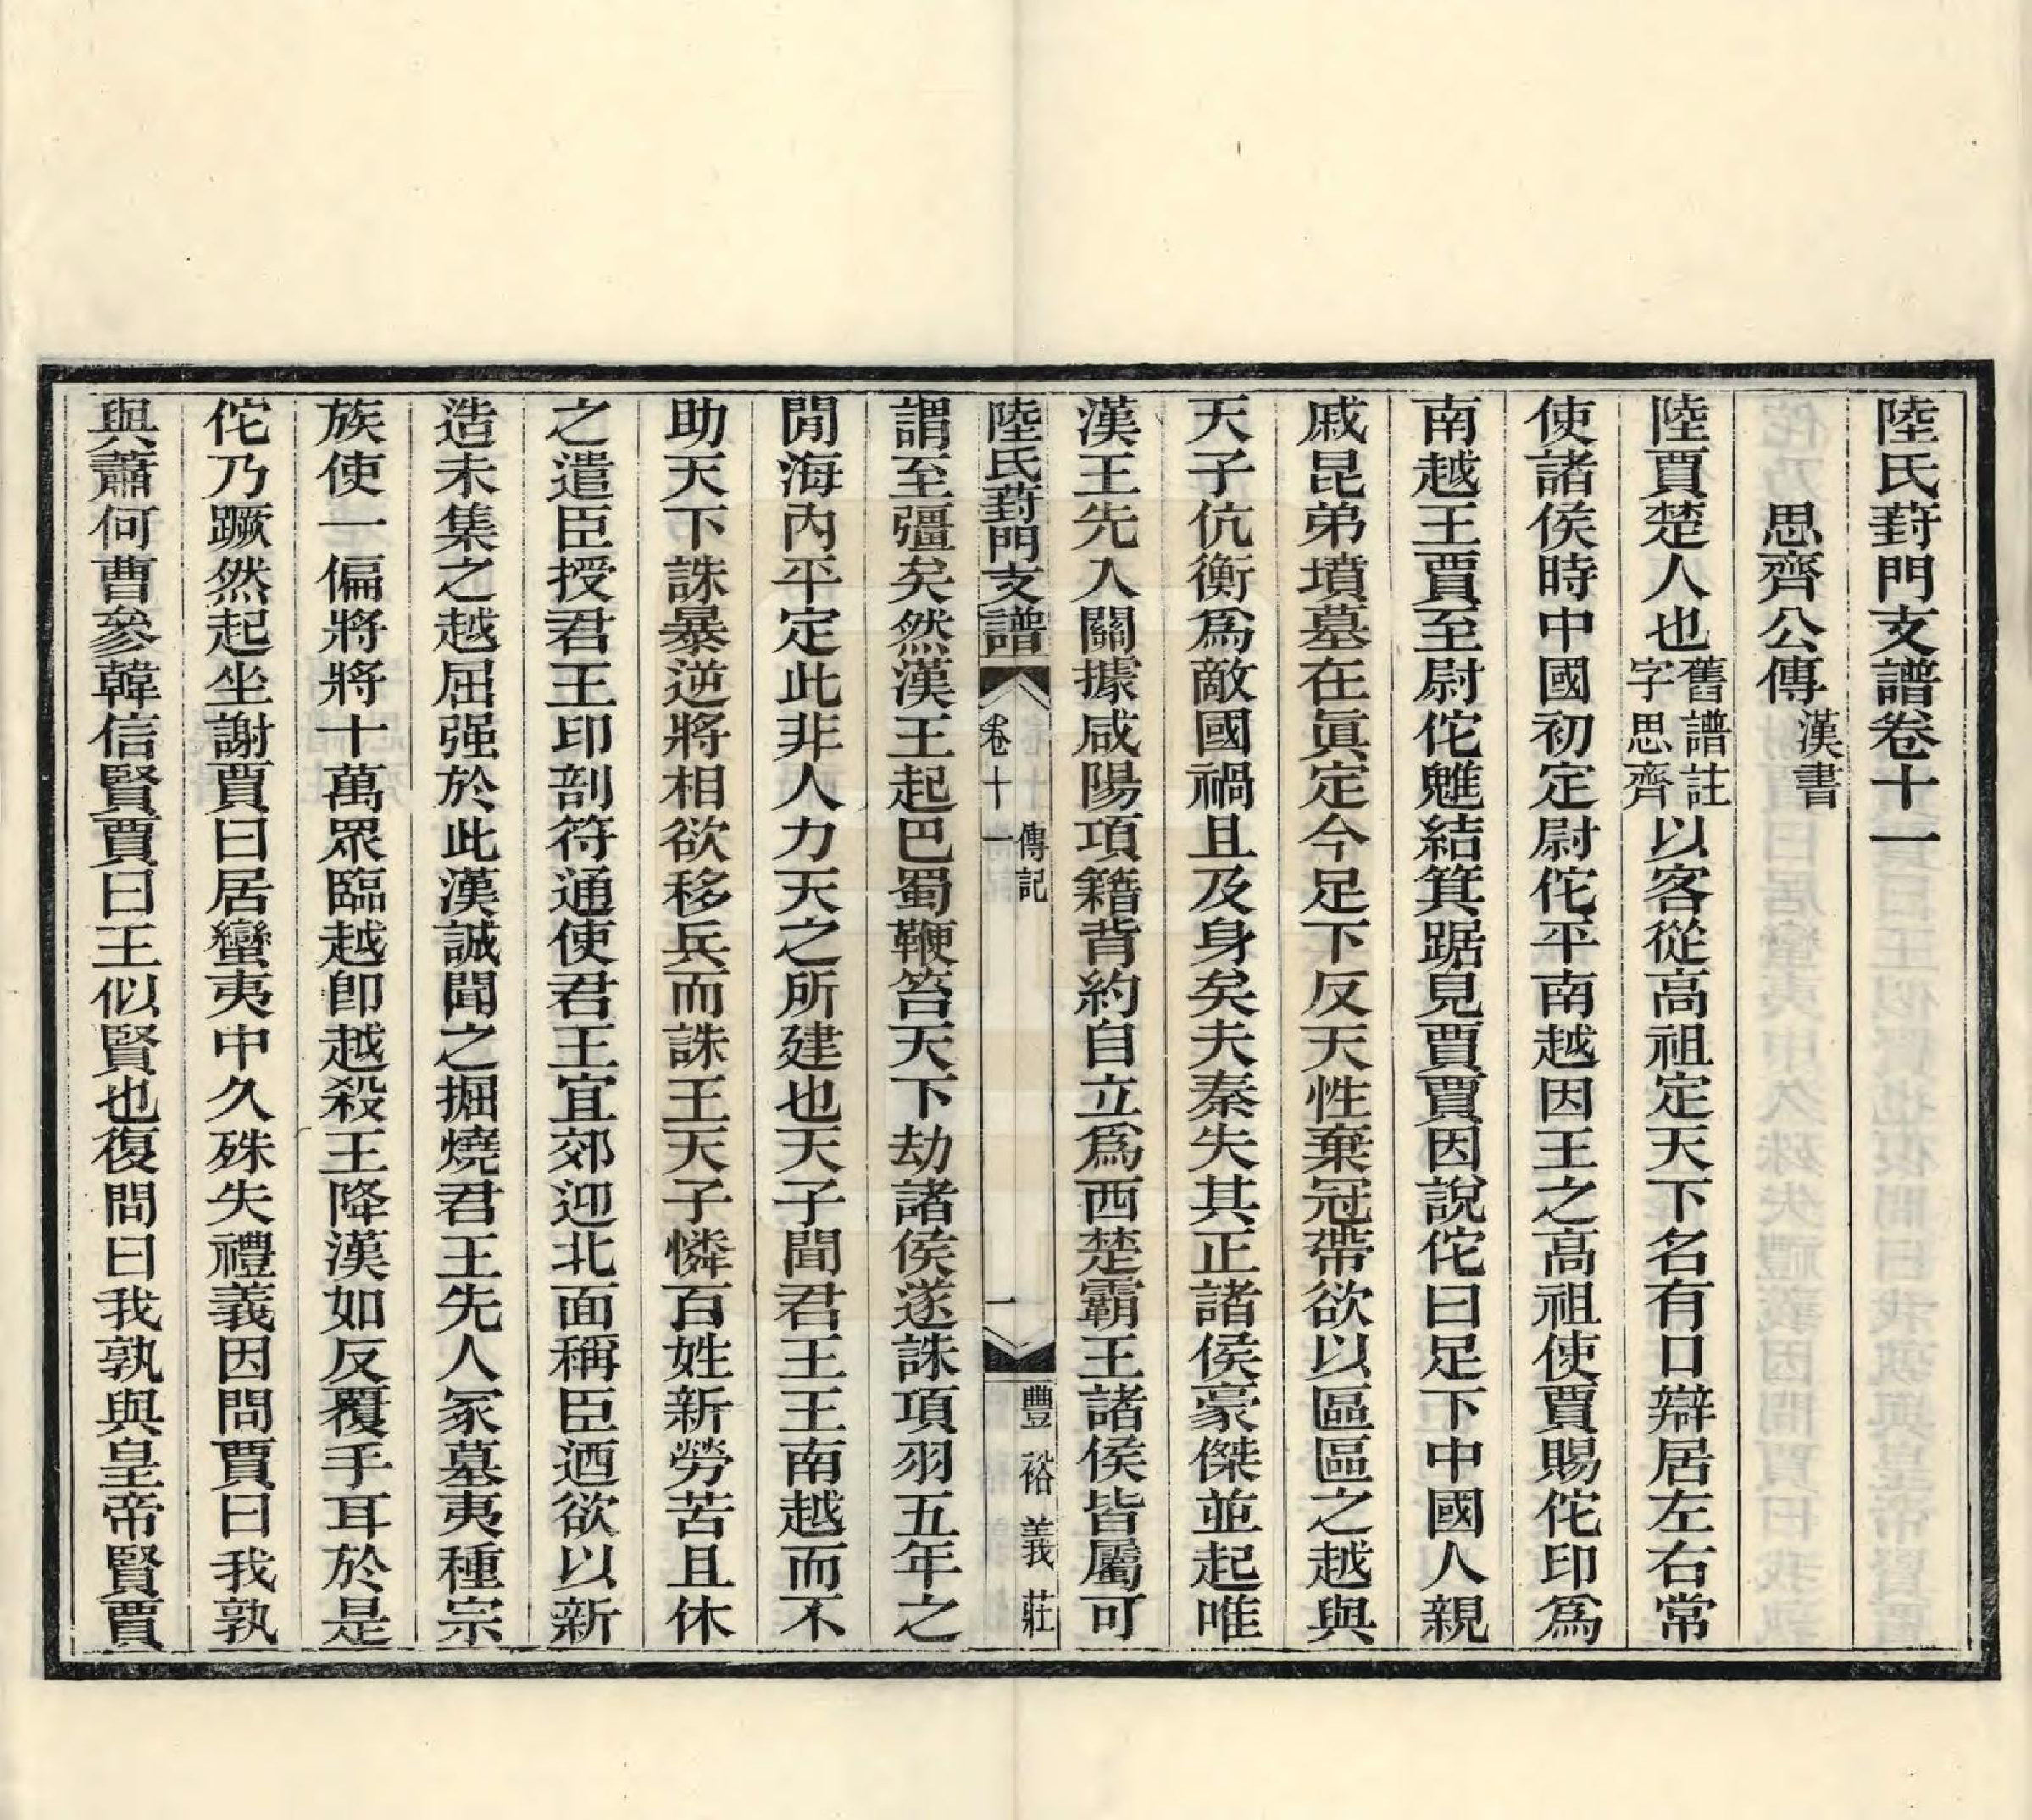 陸氏葑門支譜卷十一
思齊公傳 漢書
陸賈楚人也 舊譜註字思齊 以客從高祖定天下名有口辯居左右常
使諸侯時中國初定尉佗平南越因王之高祖使賈賜佗印為
南越王賈至尉佗魋結箕踞見賈賈因說佗曰足下中國人親
戚昆弟墳墓在眞定今足下反天性棄冠帶欲以區區之越與
天子伉衡爲敵國禍且及身矣夫秦失其正諸侯豪傑並起唯
漢王先入關據咸陽項籍背約自立爲西楚霸王諸侯皆屬可
陸氏葑門支譜 卷十一 傳記 一 豐裕義莊
謂至彊矣然漢王起巴蜀鞭笞天下劫諸侯遂誅項羽五年之
閒海內平定此非人力天之所建也天子聞君王王南越而不
助天下誅暴逆將相欲移兵而誅王天子憐百姓新勞苦且休
之遣臣授君王印剖符通使君王宜郊迎北面稱臣迺欲以新
造未集之越屈强於此漢誠聞之掘燒君王先人冢墓夷種宗
族使一偏將將十萬眾臨越卽越殺王降漢如反覆手耳於是
佗乃蹶然起坐謝賈曰居蠻夷中久殊失禮義因問賈曰我孰
與蕭何曹參韓信賢賈曰王似賢也復問曰我孰與皇帝賢賈